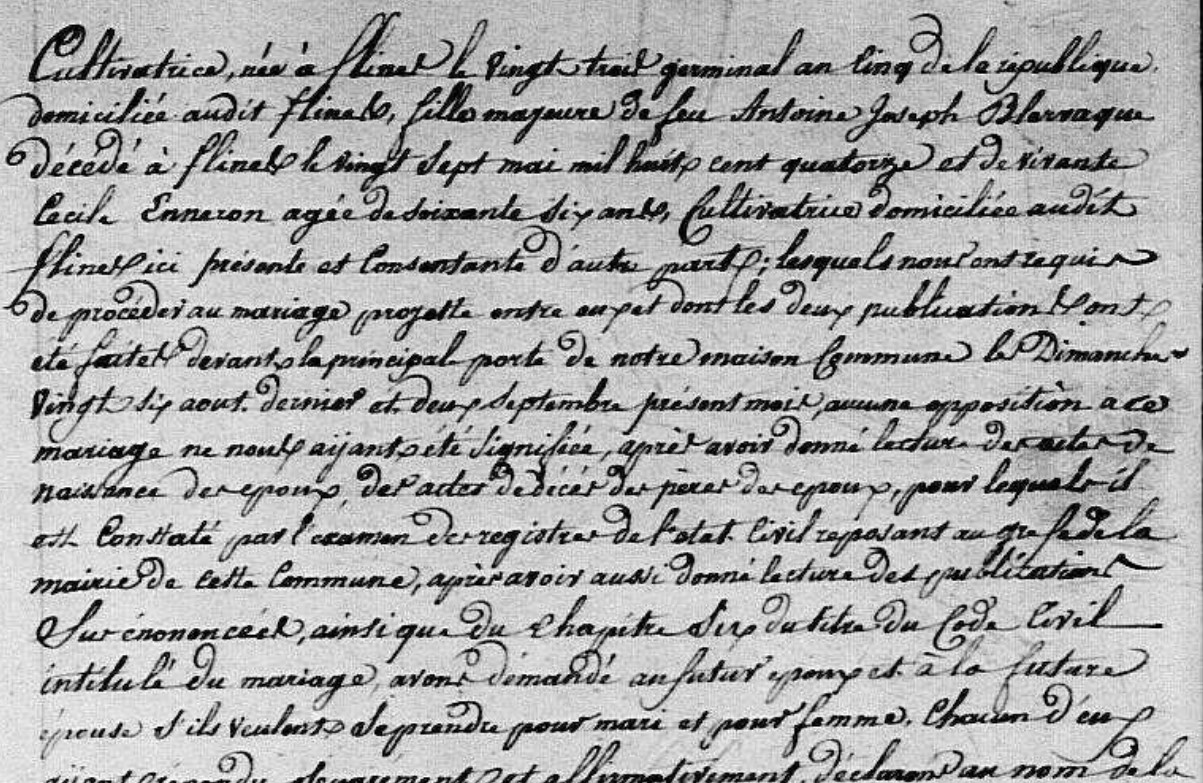 Cultivatrice, née à flines le vingt trois germinal an cinq de la république
domiciliée audit flines, fille majeure de feu Antoine Joseph Blervaque
décédé à flines le vingt sept mai mil huit cent quatorze et de vivante
Cecile Enneron agée de soixante six ans, Cultivatrice domiciliée audit
flines ici présente et Consentante d'autre part; lesquels nous ont requis
de procéder au mariage projetté entre eux et dont les deux publications ont
été faites devant la principal porte de notre maison Commune les Dimanches
vingt six aout dernier et deux septembre présent mois, aucune opposition a ce
mariage ne nous aijant été signifiée, après avoir donné lecture des actes de
naissance des epoux, des actes de dicès des pères des epoux, pour lequels il
est Constaté par l'examen des registres de l'etat Civil reposans au grefe de la
mairie de cette Commune, après avoir aussi donné lecture des publications
Sus énononcées, ainsi que du Chapitre Six du titre du Code Civil
intitulé du mariage, avons démandé au futur epoux et à la future
épouse s'ils veulent se prendre pour mari et pour femme. Chacun d'eux
aijant répondu séparément et affirmativement, déclarons au nom de la